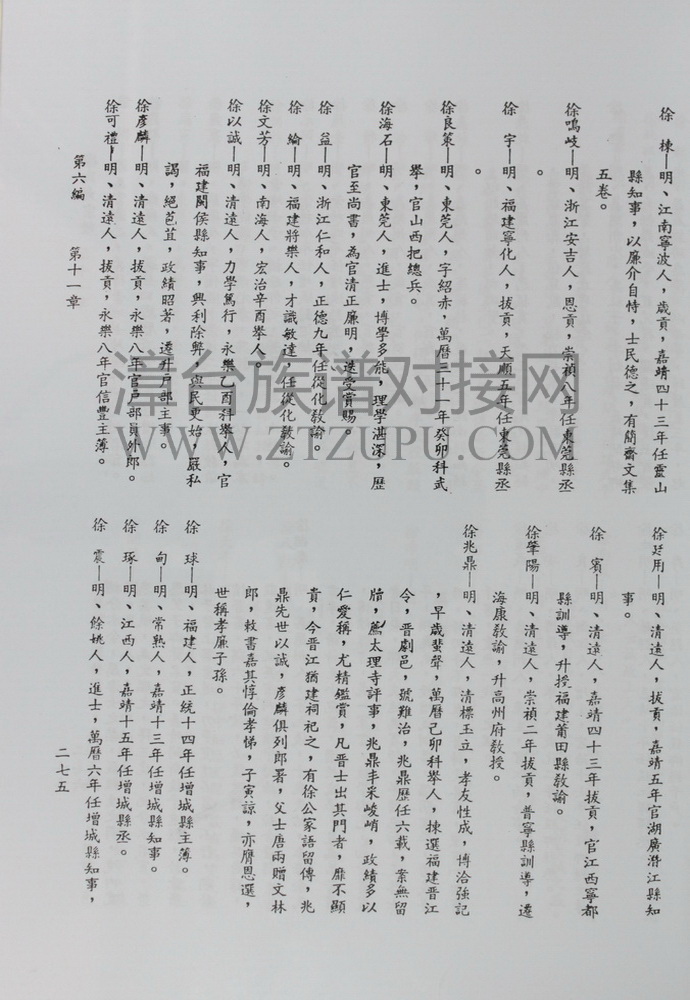 徐　棟—明、江南寧波人，歲貢，嘉靖四十三年任靈山
縣知事，以廉介自恃，士民德之，有蘭齋文集
五卷。
徐鳴岐—明、浙江安吉人，恩貢，崇禎八年任東莞縣丞
。
徐　宇—明、福建寧化人，拔貢，天順五年任東莞縣丞
。
徐良策—明、東莞人，字紹赤，萬曆三十一年癸卯科武
擧，官山西把總兵。
徐海石—明、東莞人，進士，博學多能，理學湛深，歷
官至尚書，為官清正廉明，迭受賞賜。
徐　益—明、浙江仁和人，正德九年任從化敎諭。
徐　綸—明、福建將樂人，才識敏達，任從化敎諭。
徐文芳—明、南海人，宏治辛酉擧人。
徐以誠—明、清遠人，力學篤行，永樂乙酉科擧人，官
福建閩侯縣知事，興利除弊，與民更始，嚴私
謁，絕苞苴，政績昭著，遷升戶部主事。
徐彥麟—明、清遠人，拔貢，永樂八年官戶部員外郎。
徐可禮—明、清遠人，拔貢，永樂八年官信豐主薄。
第六編　第十一章
徐廷用—明、清遠人，拔貢，嘉靖五年官湖廣潛江縣知
事。
徐　賓—明、清遠人，嘉靖四十三年拔貢，官江西寧都
縣訓導，升授福建莆田縣敎諭。
徐肇陽—明、清遠人，崇禎二年拔貢，普寧縣訓導，遷
海康敎諭，升高州府敎授。
徐兆鼎—明、清遠人，清標玉立，孝友性成，博洽強記
，早歲蜚聲，萬曆己卯科擧人，揀選福建晉江
令，晉劇邑，號難治，兆鼎歷任六載，案無留
牘，薦太理寺評事，兆鼎丰采峻峭，政績多以
仁愛稱，尤精鑑賞，凡晉士出其門者，靡不顯
貴，今晉江猶建祠祀之，有徐公家語留傳，兆
鼎先世以誠，彥麟俱列郎署，父士唐兩贈文林
郎，敕書嘉其惇倫孝悌，子寅諒，亦膺恩選，
世稱孝廉子孫。
徐　球—明、福建人，正統十四年任增城縣主薄。
徐　甸—明、常熟人，嘉靖十三年任增城縣知事。
徐　琢—明、江西人，嘉靖十五年任增城縣丞。
徐　震—明、餘姚人，進士，萬曆六年任增城縣知事，
二七五
漳台族谱对接网
WWW.ZTZUPU.COM